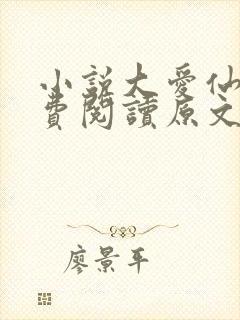 小説大愛仙
費閱讀原文
廖景平